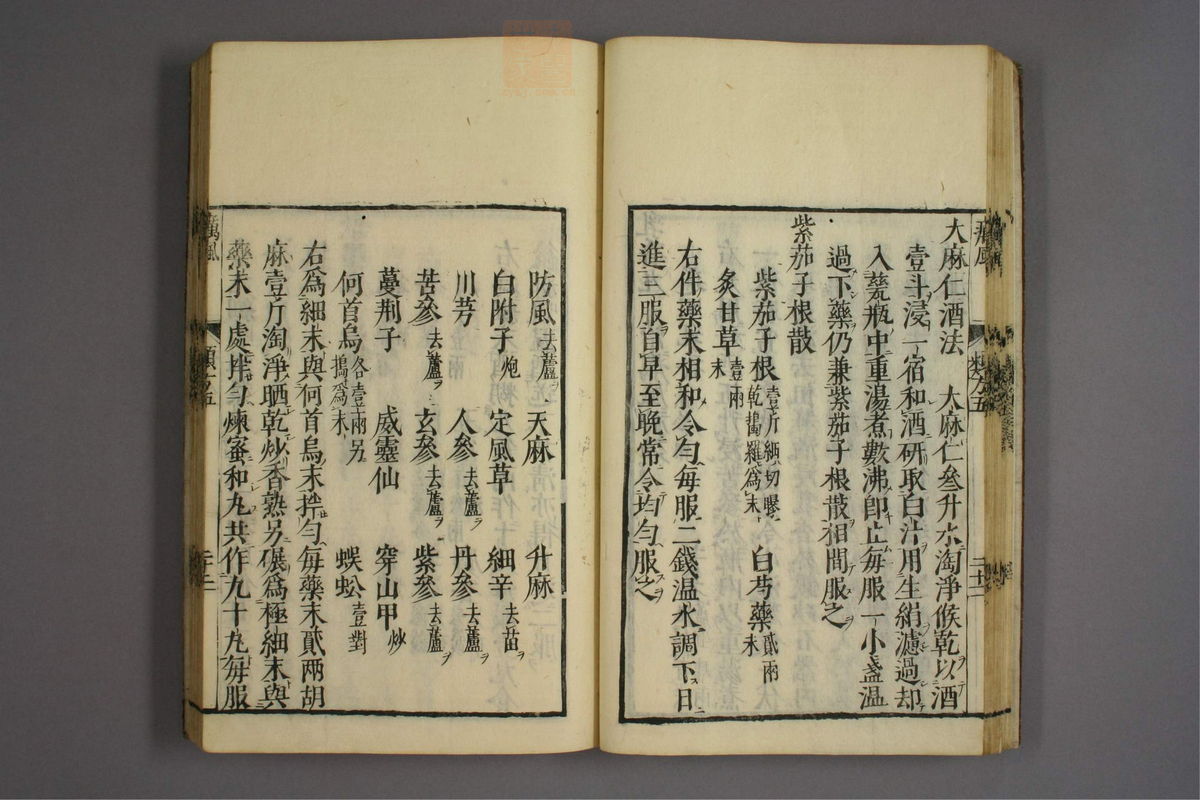 大麻仁酒法　大麻仁叄升水淘淨候乾以酒
壹斗浸一宿和酒研取白汁用生絹濾過却
入甆瓶中重湯煮數沸即止每服一小盞温
過下藥仍兼紫茄子根散相間服之
紫茄子根散
紫茄子根壹斤細切曝乾搗羅爲末　白芍藥貳兩末
炙甘草壹兩末
右件藥末相和令勻每服二錢温水調下日
進三服自早至晚常令均勻服之
防風去蘆　天麻　升麻
白附子炮　定風草　細辛去苗
川芎　人參去蘆　丹參去蘆
苦參去蘆　玄參去蘆　紫參去蘆
蔓荆子　威靈仙　穿山甲炒
何首烏各壹兩另搗爲末　蜈蚣壹對
右爲細末與何首烏末拌勻每藥末貳兩胡
麻壹斤淘淨晒乾炒香熟另碾爲極細末與
藥末一處拌勻煉蜜和丸共作九十九丸每服